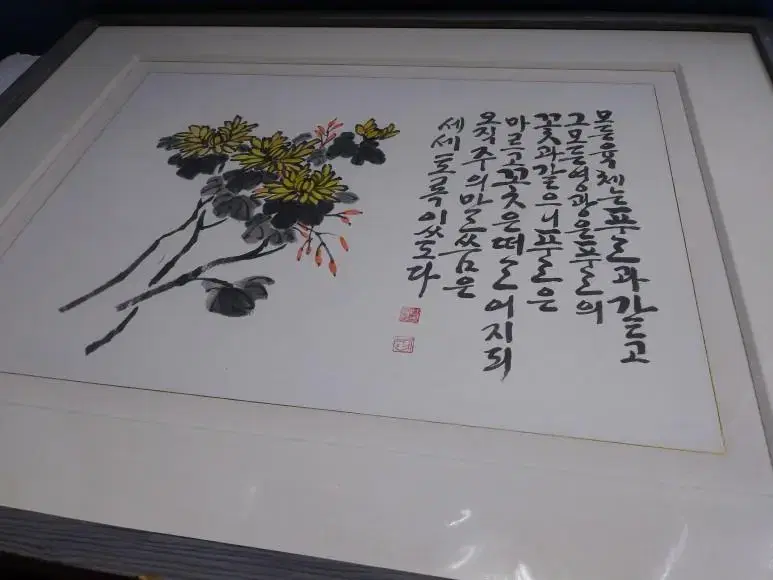 모든육체는풀과같고
그모든영광은풀의
꽃과같으니풀은
마르고꽃은떨어지되
오직주의말씀은
세세토록있도다